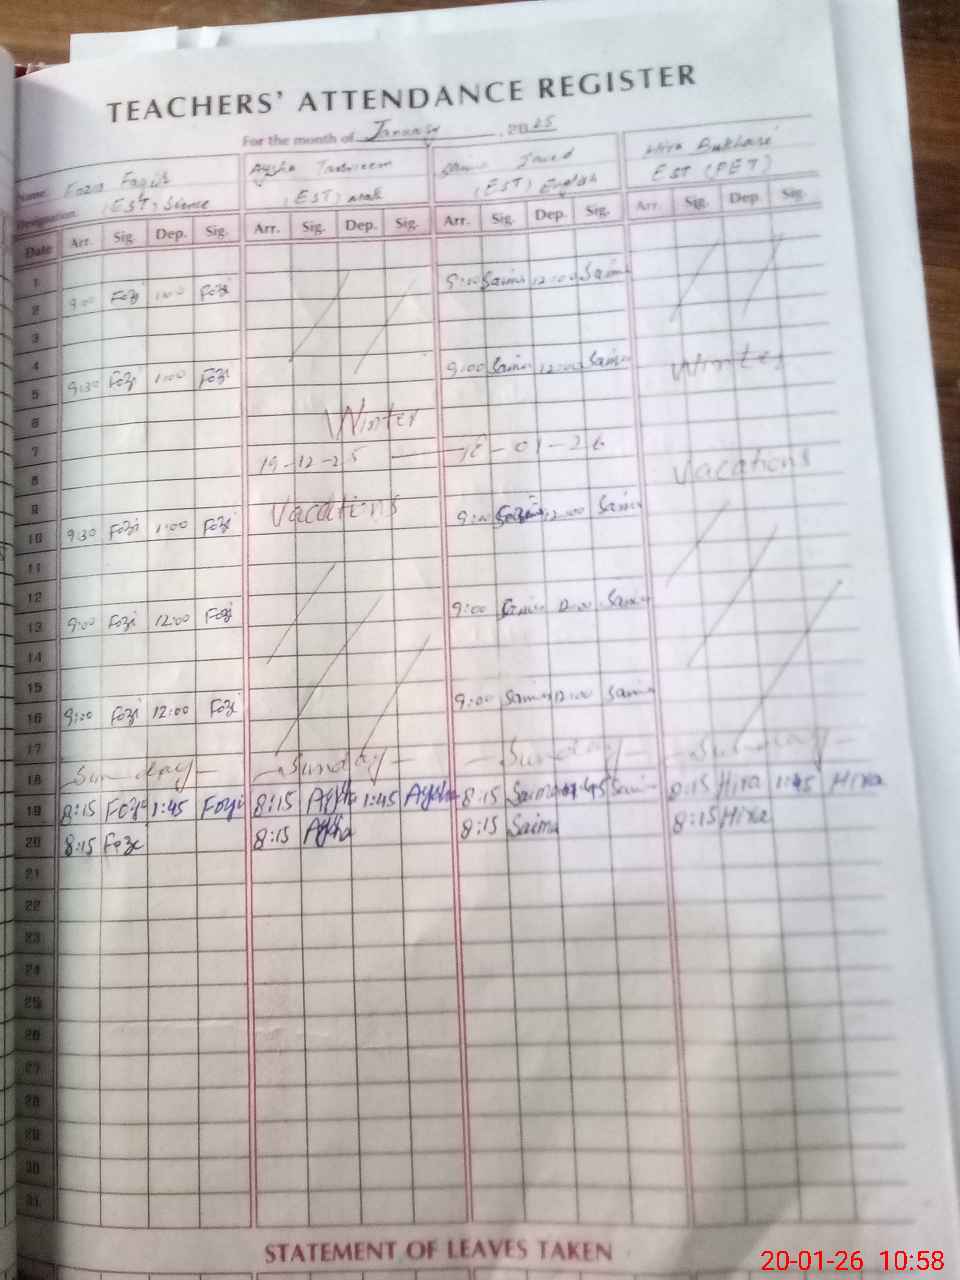 TEACHERS' ATTENDANCE REGISTER
For the month of January 2025
Name Aysha Hira Bukhari
Designation (EST) Science (EST) (EST) English EST (PET)
Date Arr. Sig. Dep. Sig. Arr. Sig. Dep. Sig. Arr. Sig. Dep. Sig. Arr. Sig. Dep. Sig.
1 9:00 Saima 12:00 Saima
2 9:00 Fozi 1:00 Fozi
3
4 9:00 Saima 12:00 Saima Winter
5 9:30 Fozi 1:00 Fozi
6 Winter
7 19-12-25 — 18-01-26
8 Vacations
9 Vacations 9:00 12:00 Saima
10 9:30 Fozi 1:00 Fozi
11
12 9:00 Saima 12:00 Saima
13 9:00 Fozi 12:00 Fozi
14
15 9:00 Saima 12:00 Saima
16 9:00 Fozi 12:00 Fozi
17
18 — Sunday — — Sunday — — Sunday — — Sunday —
19 8:15 Fozi 1:45 Fozi 8:15 Aysha 1:45 Aysha 8:15 Saima 1:45 Saima 8:15 Hira 1:45 Hira
20 8:15 Fozi 8:15 Aysha 8:15 Saima 8:15 Hira
21
22
23
24
25
26
27
28
29
30
31
STATEMENT OF LEAVES TAKEN
20-01-26 10:58